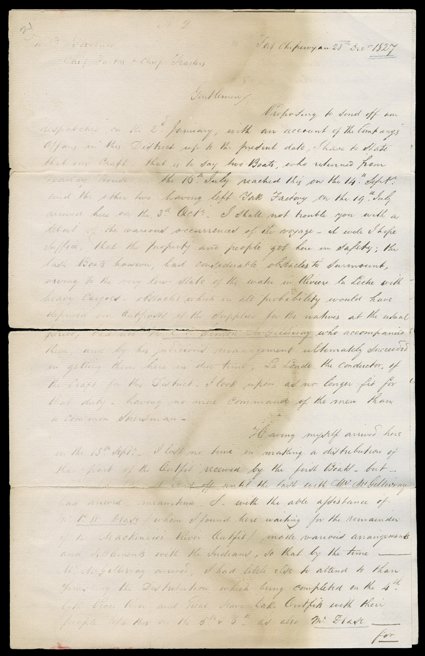 N 2
Fort Chipewyan 28th Decr 1827
Chief Factors & Chief Traders
Gentlemen
Proposing to send off our
dispatches on the 2d January, with an account of the Company's
Affairs in this District up to the present date, I have to state
that our Craft, that is to say two Boats, who returned from
the 16th July reached this on the 14th Septr.
and the other two having left York Factory on the 19th July
arrived here on the 3d Octr. I shall not trouble you with a
of the various occurrences of the voyage — it will I hope
suffice, that the property and people got here in safety; the
last Boats however, had considerable obstacles to surmount,
owing to the very low state of the water in Riviere La Loche with
heavy Cargoes — obstacles which in all probability would have
deprived our Outposts of the Supplies for the natives at the usual
who accompanied
them, and by his judicious arrangement ultimately succeeded
in getting them here in due time. La Londe the conductor, of
the Craft for this District, I look upon as no longer fit for
that duty — having no more command of the men than
a common Steersman —
Having myself arrived here
on the 15th Septr. I lost no time in making a distribution of
the part of the Outfit received by the first Boats — but —
off until the last with Mr McGillivray
had arrived, meantime I — with the able assistance of
(whom I found here waiting for the remainder
of McKenzies River Outfit) made various arrangements
and with the Indians, so that by the time
Mr McGillivray arrived, I had little else to attend to than
the Distribution which being completed on the 4th
and Great Slave Lake Outfits with their
on the 5th & 6th as also Mr
for